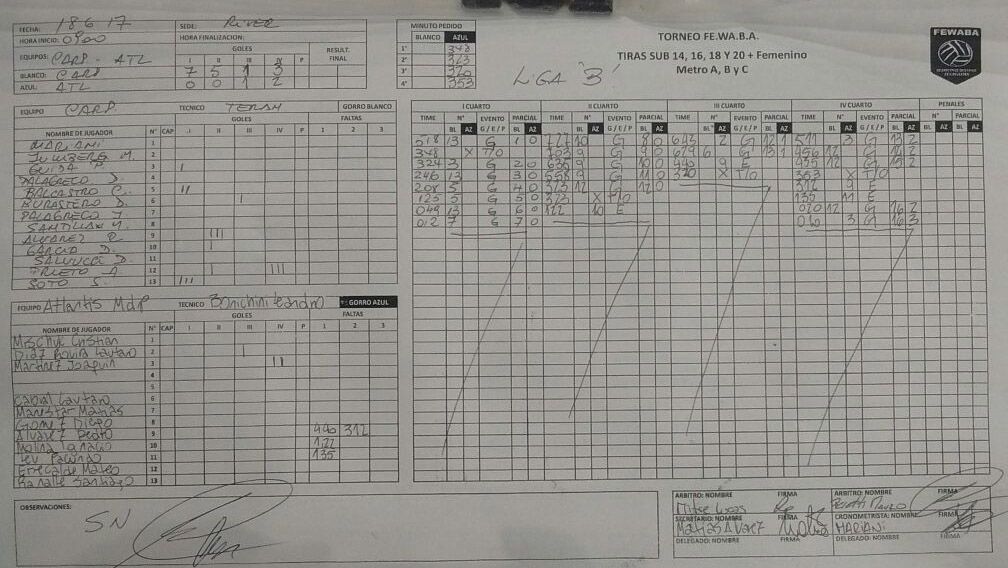 FECHA: 18 6 17 SEDE: RIVER
HORA INICIO: 0900 HORA FINALIZACION:
EQUIPOS: CARP - ATL GOLES RESULT. FINAL
I II III IV P
BLANCO: CARP 7 5 1 3
AZUL: ATL 0 0 1 2
MINUTO PEDIDO
BLANCO AZUL
1° 348
2° 323
3° 320
4° 353
LIGA 'B'
TORNEO FE.WA.B.A.
TIRAS SUB 14, 16, 18 Y 20 + Femenino
Metro A, B y C
FEWABA
EQUIPO CARP TECNICO TERAN GORRO BLANCO
GOLES FALTAS
NOMBRE DE JUGADOR N° CAP I II III IV P 1 2 3
MARIANI 1
2
GUIDA 3 I
DALAGRECO D. 4
BALCASTRO C. 5 II
BURASTERO D. 6 I
PALAGRECO J. 7 I
SANTILLAN M. 8
ALVAREZ R. 9 III
GARCIA D. 10 I
SALVUCCI D. 11
PRIETO A. 12 I III
SOTO S. 13 III
EQUIPO Atlantis MdP TECNICO Bonichini Leandro GORRO AZUL
GOLES FALTAS
NOMBRE DE JUGADOR N° CAP I II III IV P 1 2 3
Mischul Cristian 1
Diaz Rovira Lautaro 2 I
Martinez Joaquin 3 II
4
5
Cabral Lautaro 6
Manestar Matias 7
Gomez Diego 8
Alvarez Pedro 9 440 312
Molina Ignacio 10 1.22
Lev Facundo 11 135
Errecalde Mateo 12
Ranalle Santiago 13
I CUARTO II CUARTO III CUARTO IV CUARTO PENALES
TIME N° EVENTO PARCIAL TIME N° EVENTO PARCIAL TIME N° EVENTO PARCIAL TIME N° EVENTO PARCIAL
BL AZ G / E / P BL AZ BL AZ G / E / P BL AZ BL AZ G / E / P BL AZ BL AZ G / E / P BL AZ BL AZ
518 13 G 1 0 727 10 G 8 0 643 2 G 12 1 511 3 G 13 2
348 X T/O 703 9 G 9 0 629 6 G 13 1 456 12 G 14 2
324 3 G 2 0 635 9 G 10 0 440 9 E 435 12 G 15 2
246 13 G 3 0 558 9 G 11 0 320 X T/O 353 X T/O
208 5 G 4 0 373 12 G 12 0 312 9 E
125 5 G 5 0 323 X T/O 135 11 E
049 13 G 6 0 122 10 E 020 12 G 16 2
012 7 G 7 0 016 3 G 16 3
OBSERVACIONES:
SN
ARBITRO: NOMBRE FIRMA ARBITRO: NOMBRE FIRMA
SECRETARIO: NOMBRE FIRMA CRONOMETRISTA: NOMBRE FIRMA
Matias Alvarez MARIANI
DELEGADO: NOMBRE FIRMA DELEGADO: NOMBRE FIRMA